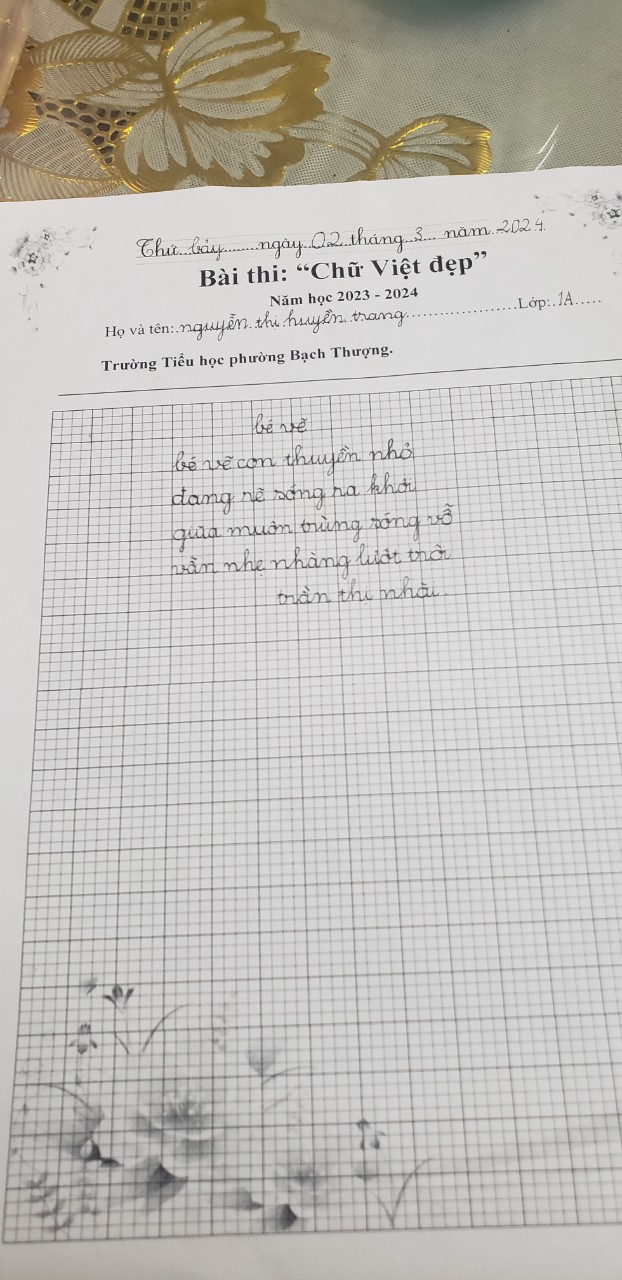 Thứ bảy........ngày 02 tháng 3 năm 2024.
Bài thi: “Chữ Việt đẹp”
Năm học 2023 - 2024
Họ và tên: nguyễn thị huyền trang....................Lớp: 1A.....
Trường Tiểu học phường Bạch Thượng.
bé vẽ
bé vẽ con thuyền nhỏ
đang rẽ sóng ra khơi
giữa muôn trùng sóng vỗ
vẫn nhẹ nhàng lướt trôi
trần thị nhài.